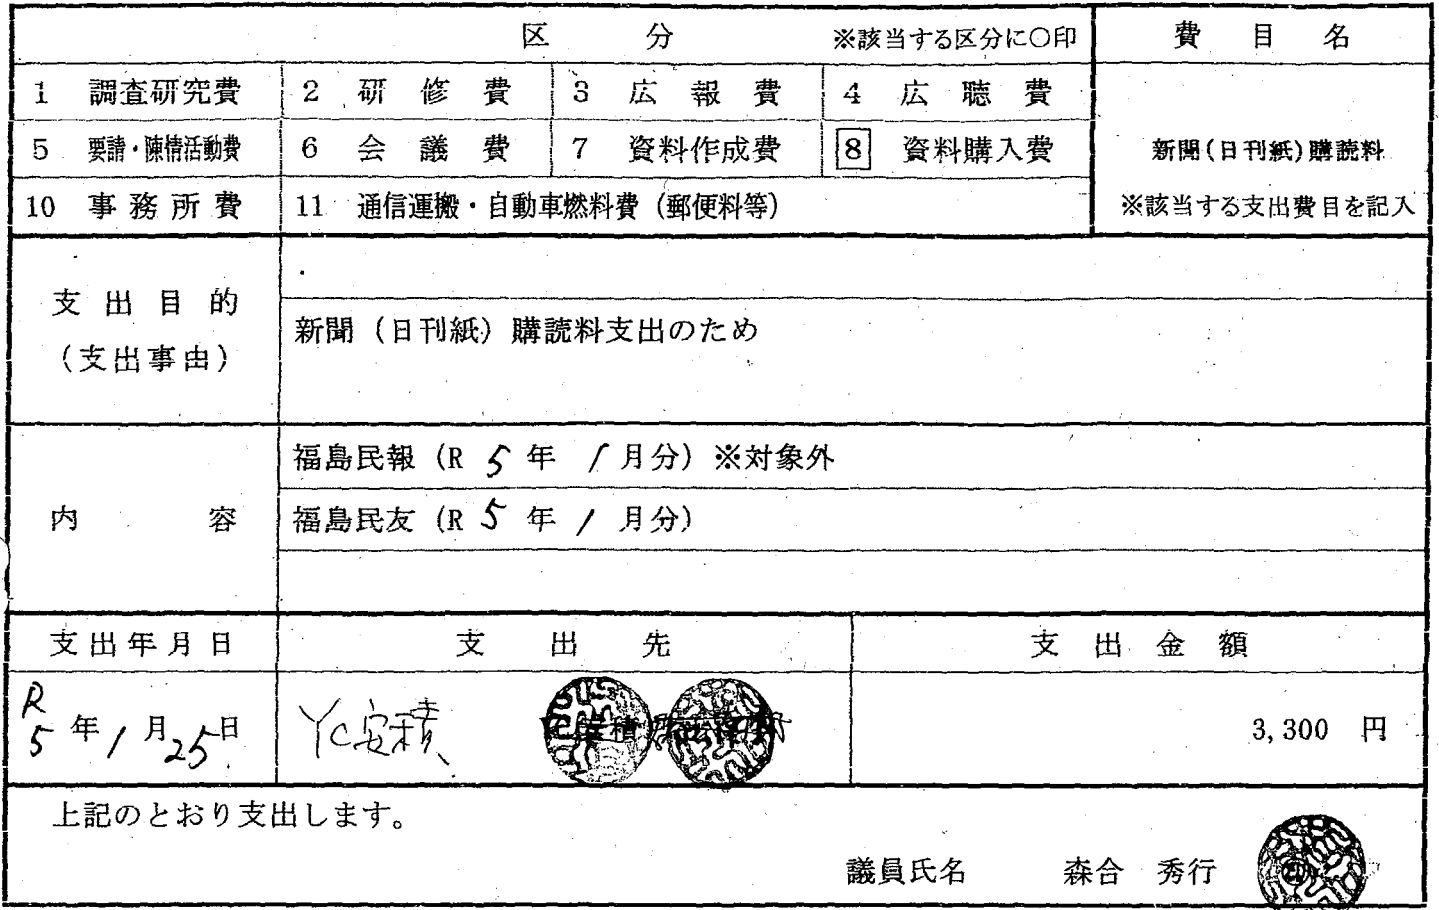 区 分 ※該当する区分に○印 費目名
1 調査研究費 2 研修費 3 広報費 4 広聴費
5 要請・陳情活動費 6 会議費 7 資料作成費 8 資料購入費 新聞(日刊紙)購読料
10 事務所費 11 通信運搬・自動車燃料費(郵便料等) ※該当する支出費目を記入
支出目的
(支出事由)
新聞(日刊紙)購読料支出のため
内 容
福島民報(R 5 年 1 月分)※対象外
福島民友(R 5 年 1 月分)
支出年月日 支出先 支出金額
R 5 年 1 月 25 日 YC安積 3,300 円
上記のとおり支出します。
議員氏名 森合 秀行